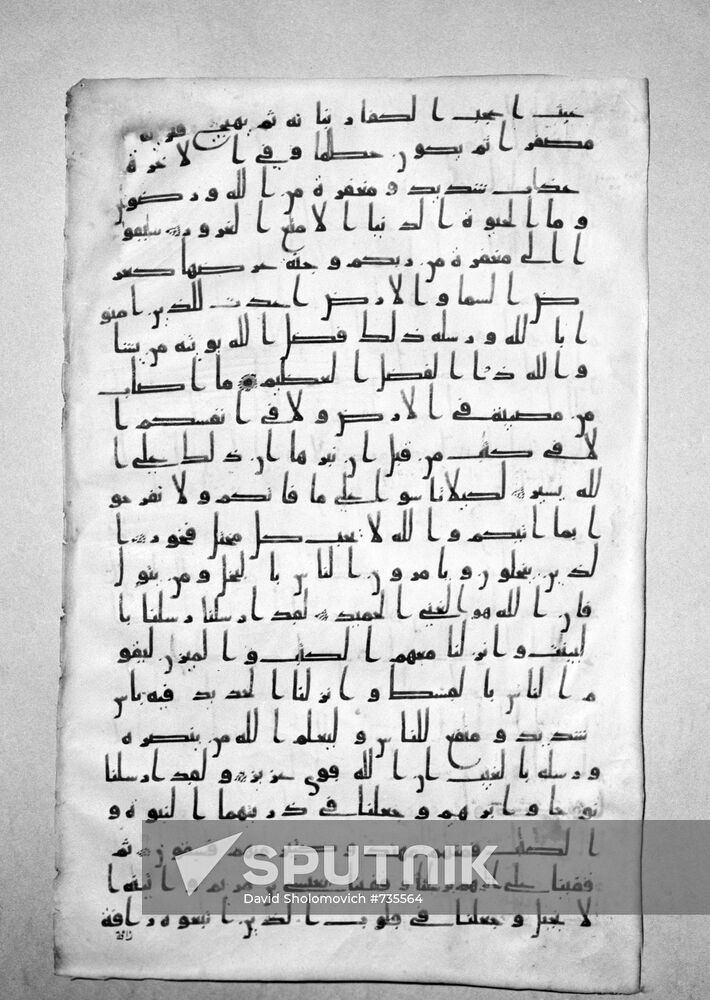 غيث اعجب الكفار نباته ثم يهيج فتريه
مصفرا ثم يكون حطما وفي الاخرة
عذاب شديد ومغفرة من الله ورضون
وما الحيوة الدنيا الا متع الغرور سابقو
ا الى مغفرة من ربكم وجنة عرضها كعر
ض السما والارض اعدت للذين امنو
ا بالله ورسله ذلك فضل الله يوتيه من يشا
والله ذوا الفضل العظيم ما اصاب
من مصيبة في الارض ولا في انفسكم ا
لا في كتب من قبل ان نبراها ان ذلك على ا
لله يسير لكيلا تاسوا على ما فاتكم ولا تفرحو
ا بما اتيكم والله لا يحب كل مختل فخور ا
لذين يبخلون ويامرون الناس بالبخل ومن يتول
فان الله هو الغني الحميد لقد ارسلنا رسلنا با
لبينت وانزلنا معهم الكتب والميزن ليقو
م الناس بالقسط وانزلنا الحديد فيه باس
شديد ومنفع للناس وليعلم الله من ينصره
ورسله بالغيب ان الله قوي عزيز ولقد ارسلنا
نوحا وابرهيم وجعلنا في ذريتهما النبوة و
الكتب فمنهم مهتد وكثير منهم فسقون ثم
قفينا على اثرهم برسلنا وقفينا بعيسى بن مريم واتينه ا
لانجيل وجعلنا في قلوب الذين اتبعوه رافة
SPUTNIK
David Sholomovich #735564